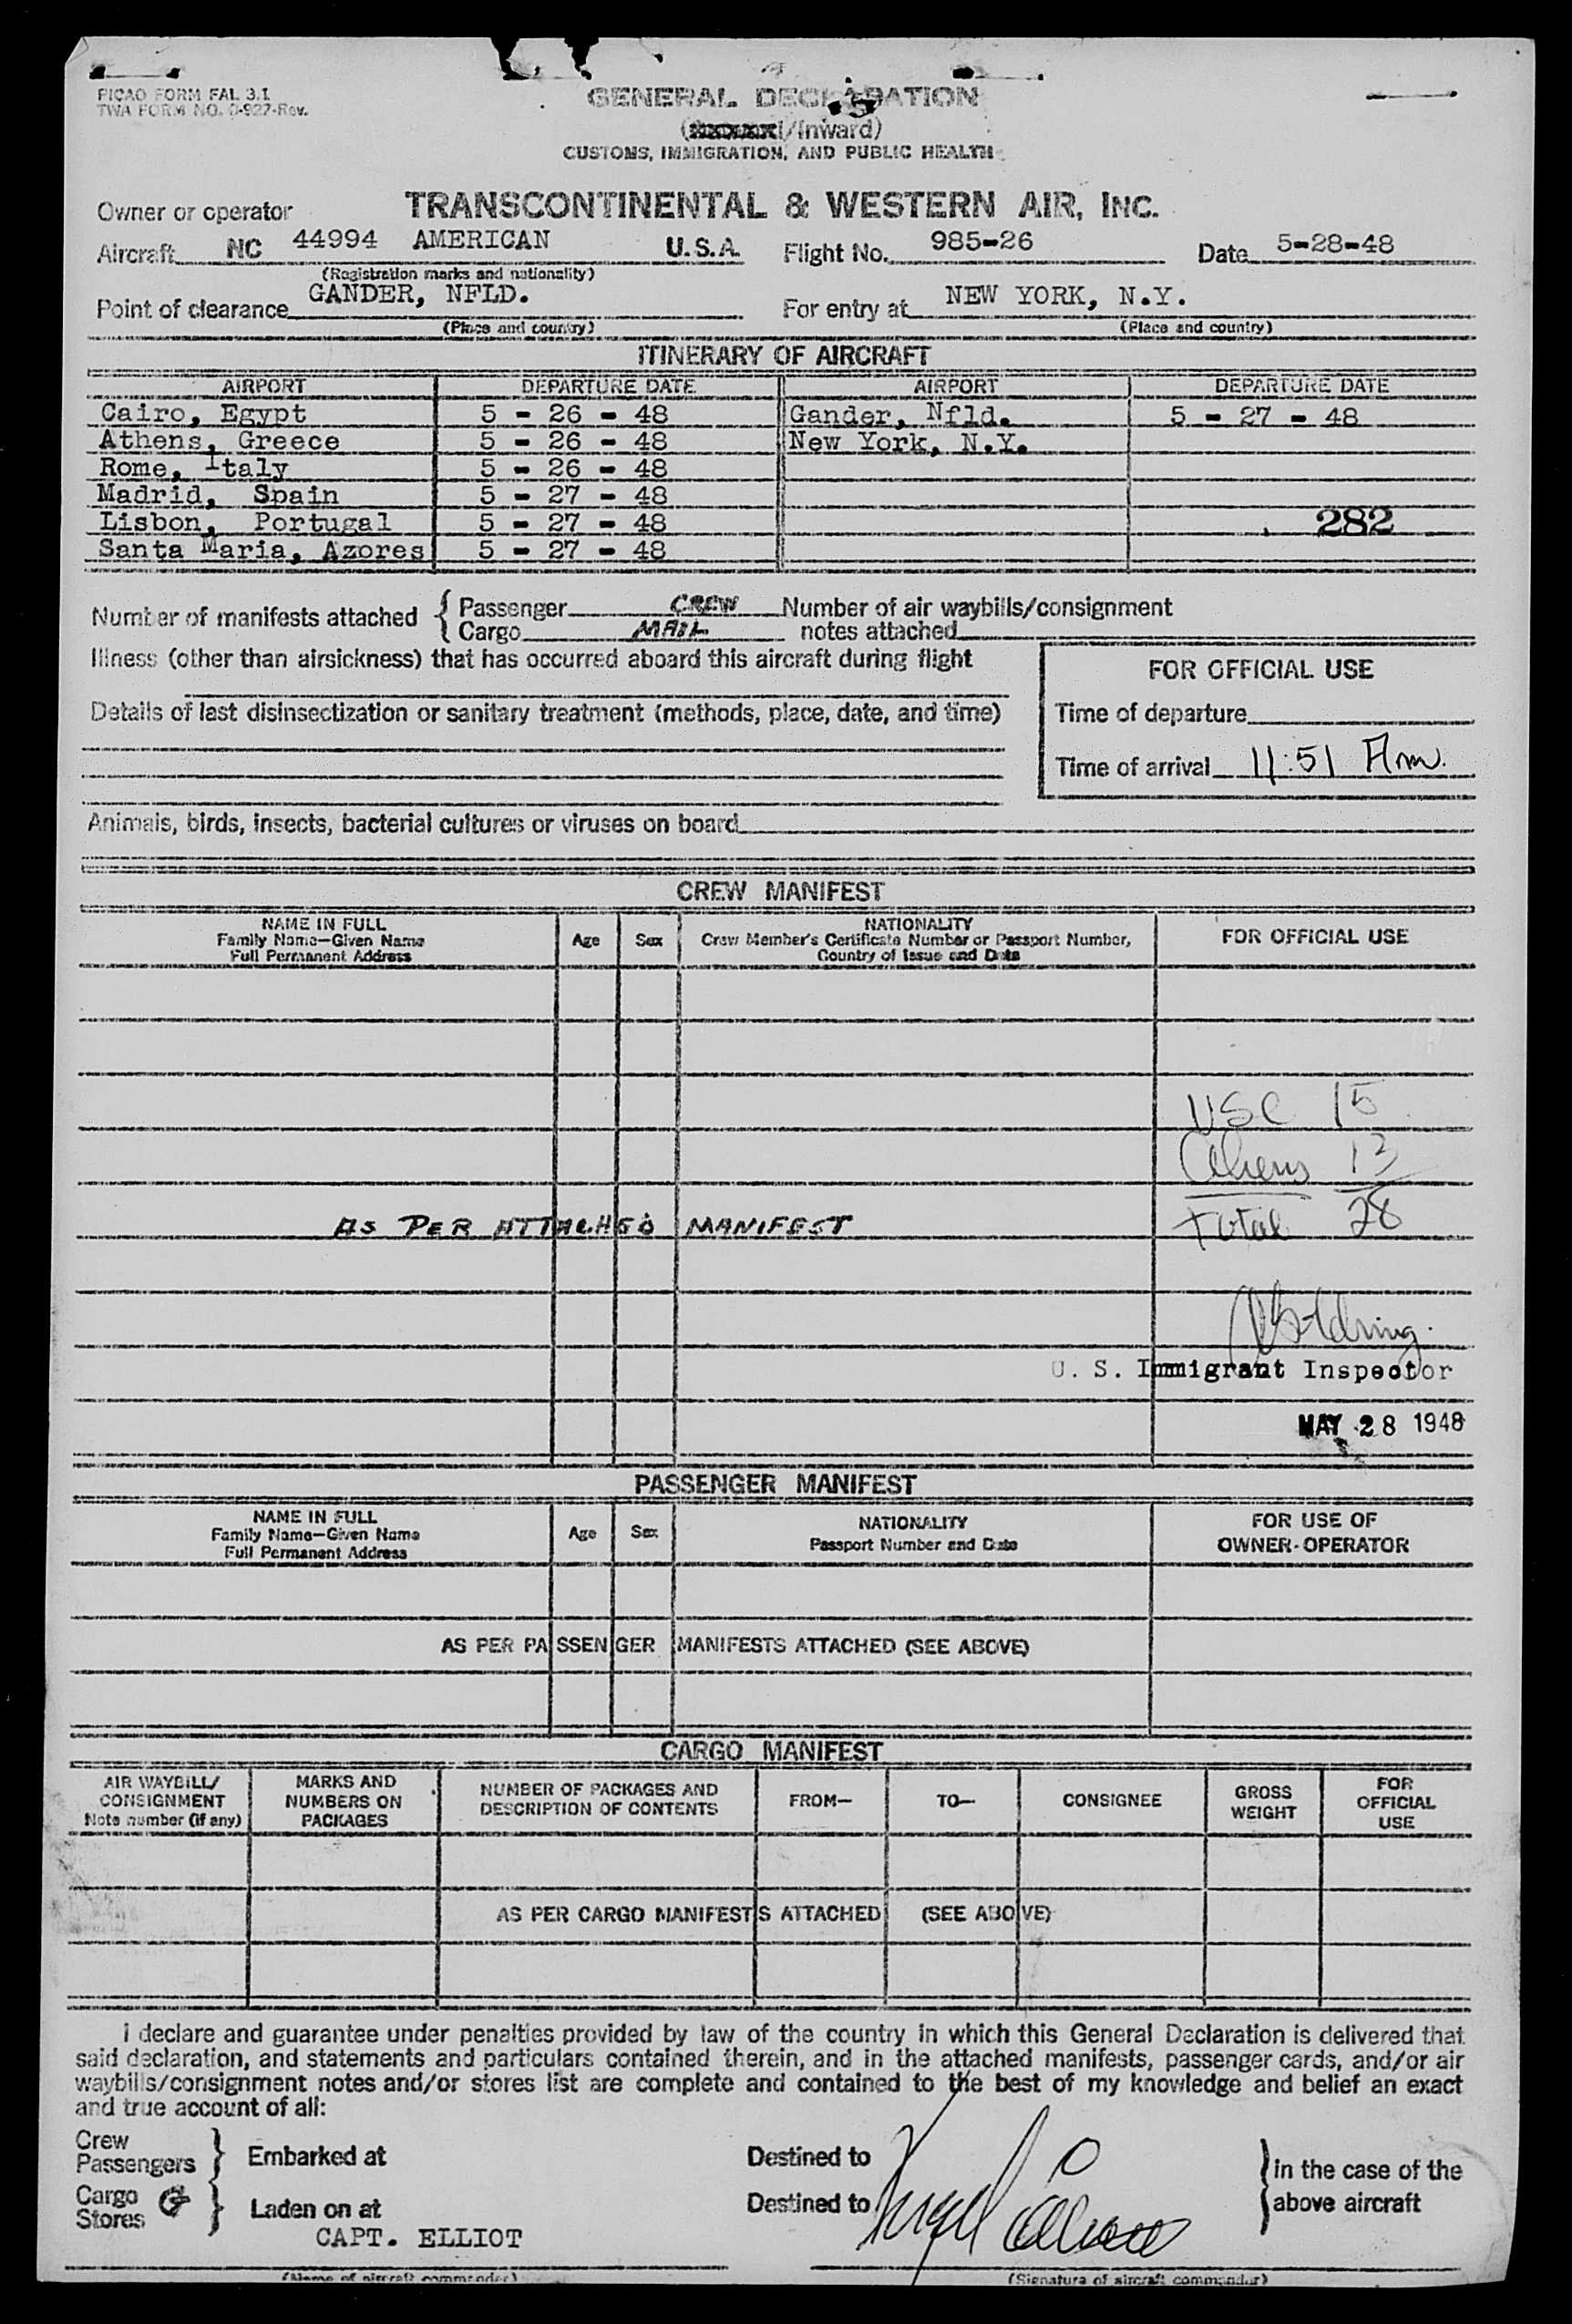 PICAO FORM FAL 3.1
TWA FORM NO. 0-927-Rev.
GENERAL DECLARATION
(/Inward)
CUSTOMS, IMMIGRATION, AND PUBLIC HEALTH
Owner or operator TRANSCONTINENTAL & WESTERN AIR, INC.
Aircraft NC 44994 AMERICAN U.S.A. Flight No. 985-26 Date 5-28-48
(Registration marks and nationality)
Point of clearance GANDER, NFLD. For entry at NEW YORK, N.Y.
(Place and country) (Place and country)
ITINERARY OF AIRCRAFT
AIRPORT DEPARTURE DATE AIRPORT DEPARTURE DATE
Cairo, Egypt 5 - 26 - 48 Gander, Nfld. 5 - 27 - 48
Athens, Greece 5 - 26 - 48 New York, N.Y.
Rome, Italy 5 - 26 - 48
Madrid, Spain 5 - 27 - 48
Lisbon, Portugal 5 - 27 - 48 282
Santa Maria, Azores 5 - 27 - 48
Number of manifests attached { Passenger CREW Number of air waybills/consignment
Cargo MAIL notes attached
Illness (other than airsickness) that has occurred aboard this aircraft during flight
FOR OFFICIAL USE
Details of last disinsectization or sanitary treatment (methods, place, date, and time)
Time of departure
Time of arrival 11:51 Am.
Animals, birds, insects, bacterial cultures or viruses on board
CREW MANIFEST
NAME IN FULL
Family Name—Given Name
Full Permanent Address
Age
Sex
NATIONALITY
Crew Member's Certificate Number or Passport Number,
Country of Issue and Date
FOR OFFICIAL USE
USC 15
Aliens 13
Total 28
AS PER ATTACHED MANIFEST
U. S. Immigrant Inspector
MAY 28 1948
PASSENGER MANIFEST
NAME IN FULL
Family Name—Given Name
Full Permanent Address
Age
Sex
NATIONALITY
Passport Number and Date
FOR USE OF
OWNER-OPERATOR
AS PER PASSENGER MANIFESTS ATTACHED (SEE ABOVE)
CARGO MANIFEST
AIR WAYBILL/
CONSIGNMENT
Note number (if any)
MARKS AND
NUMBERS ON
PACKAGES
NUMBER OF PACKAGES AND
DESCRIPTION OF CONTENTS
FROM—
TO—
CONSIGNEE
GROSS
WEIGHT
FOR
OFFICIAL
USE
AS PER CARGO MANIFESTS ATTACHED (SEE ABOVE)
I declare and guarantee under penalties provided by law of the country in which this General Declaration is delivered that
said declaration, and statements and particulars contained therein, and in the attached manifests, passenger cards, and/or air
waybills/consignment notes and/or stores list are complete and contained to the best of my knowledge and belief an exact
and true account of all:
Crew
Passengers } Embarked at Destined to
Cargo
Stores } Laden on at Destined to
} in the case of the
above aircraft
CAPT. ELLIOT
(Name of aircraft commander) (Signature of aircraft commander)